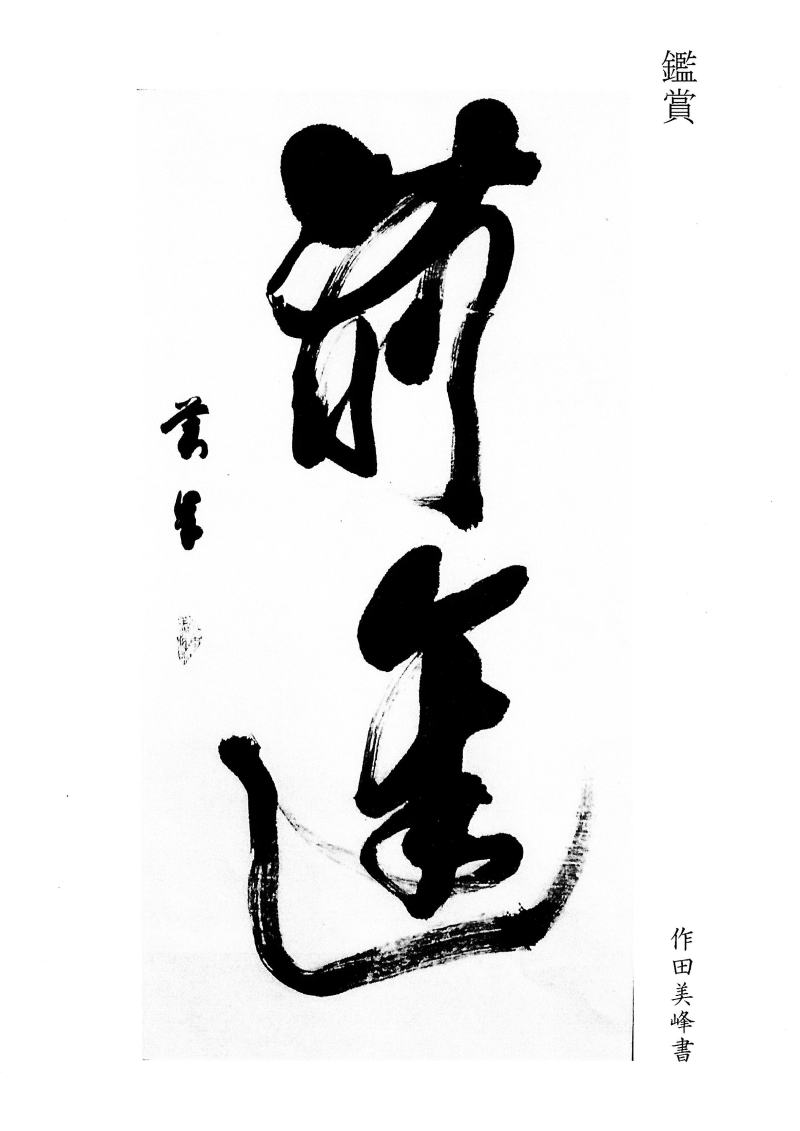 鑑賞
前
美峰
作田美峰書